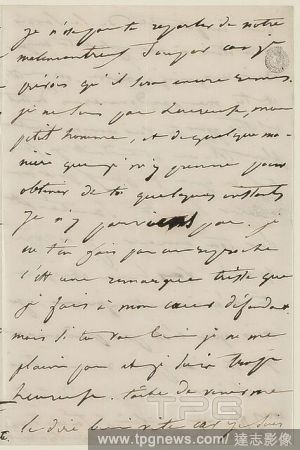 je n'ose pas te reparler de notre
malencontreux souper car je
prévois qu'il sera encore remis.
je ne suis pas heureuse, mon
petit homme, et de quelque ma-
nière que je m'y prenne pour
obtenir de toi quelques instants
je n'y parviens pas. je
ne t'en fais pas un reproche
c'est une remarque triste que
je fais à mon cœur défendant
mais si tu vas bien je ne me
plains pas et je suis trop
heureuse. tâche de venir me
le dire bien vite car je suis
TPG
www.tpgnews.com / 達志影像